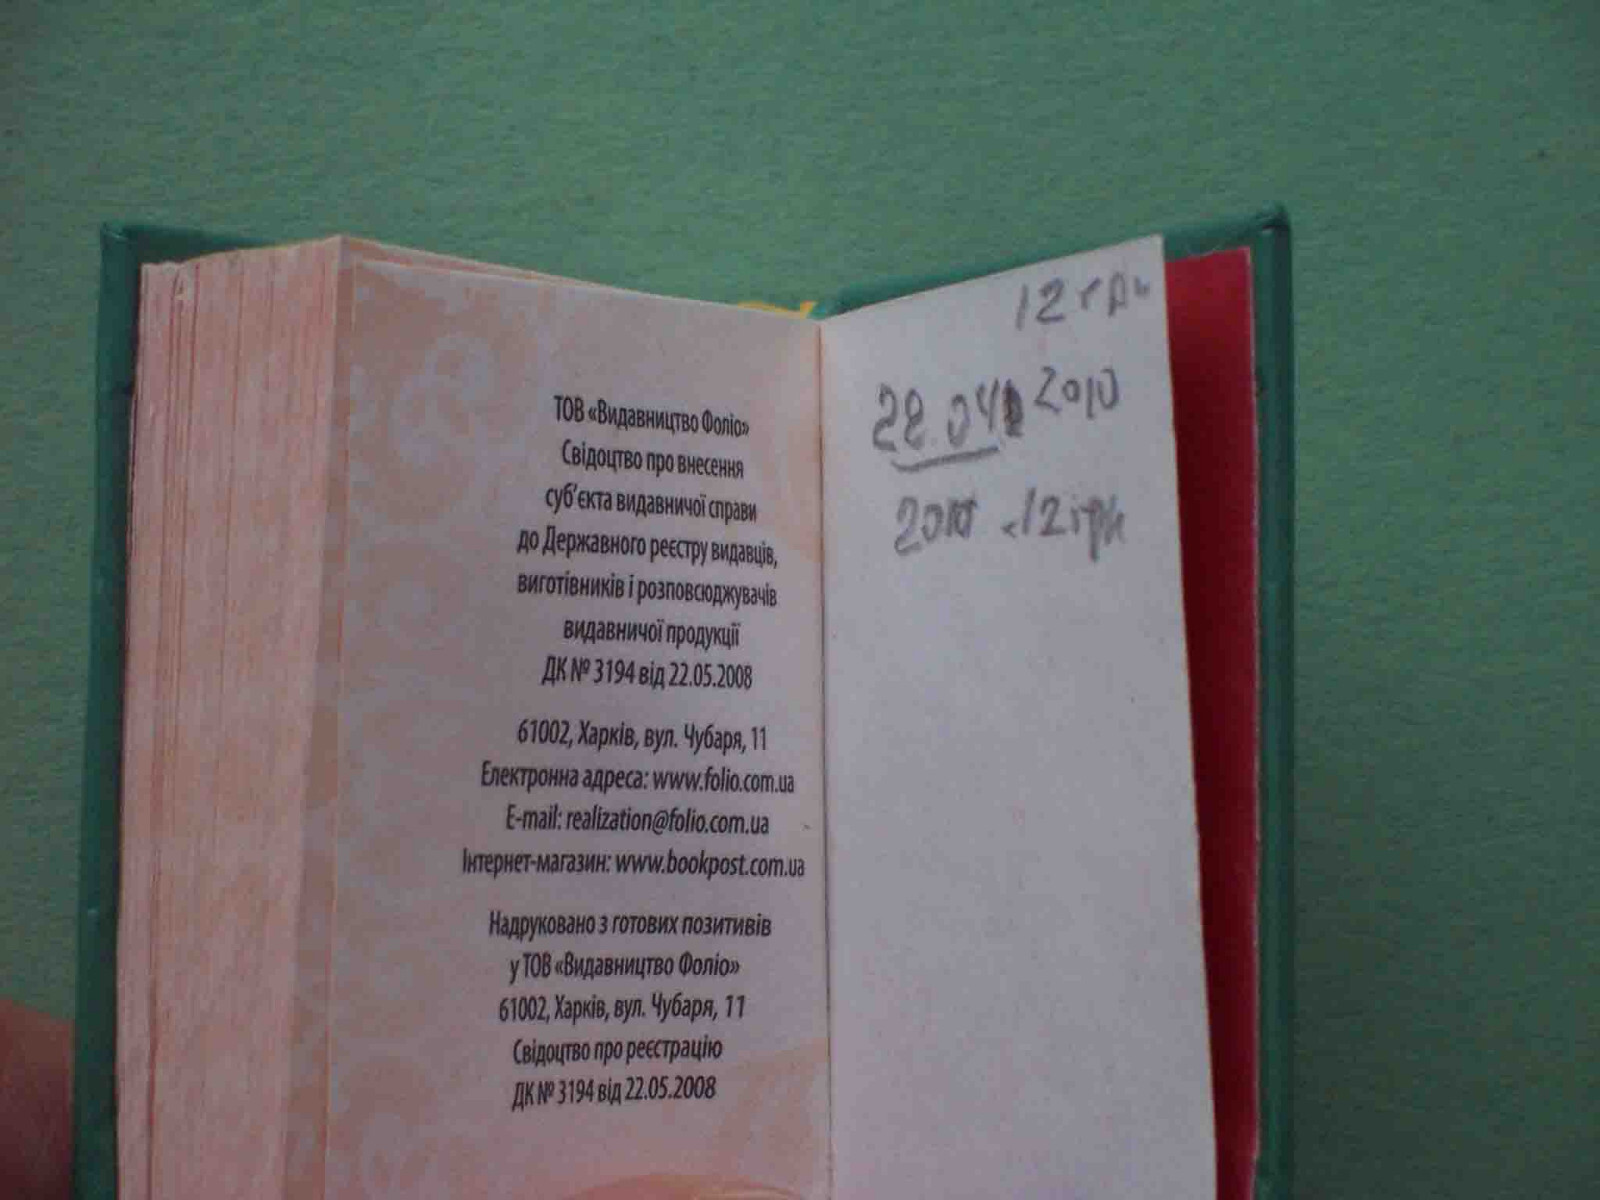 ТОВ «Видавництво Фоліо»
Свідоцтво про внесення
суб'єкта видавничої справи
до Державного реєстру видавців,
виготівників і розповсюджувачів
видавничої продукції
ДК № 3194 від 22.05.2008
61002, Харків, вул. Чубаря, 11
Електронна адреса: www.folio.com.ua
E-mail: realization@folio.com.ua
Інтернет-магазин: www.bookpost.com.ua
Надруковано з готових позитивів
у ТОВ «Видавництво Фоліо»
61002, Харків, вул. Чубаря, 11
Свідоцтво про реєстрацію
ДК № 3194 від 22.05.2008
12 грн
28.04 2010
12 грн